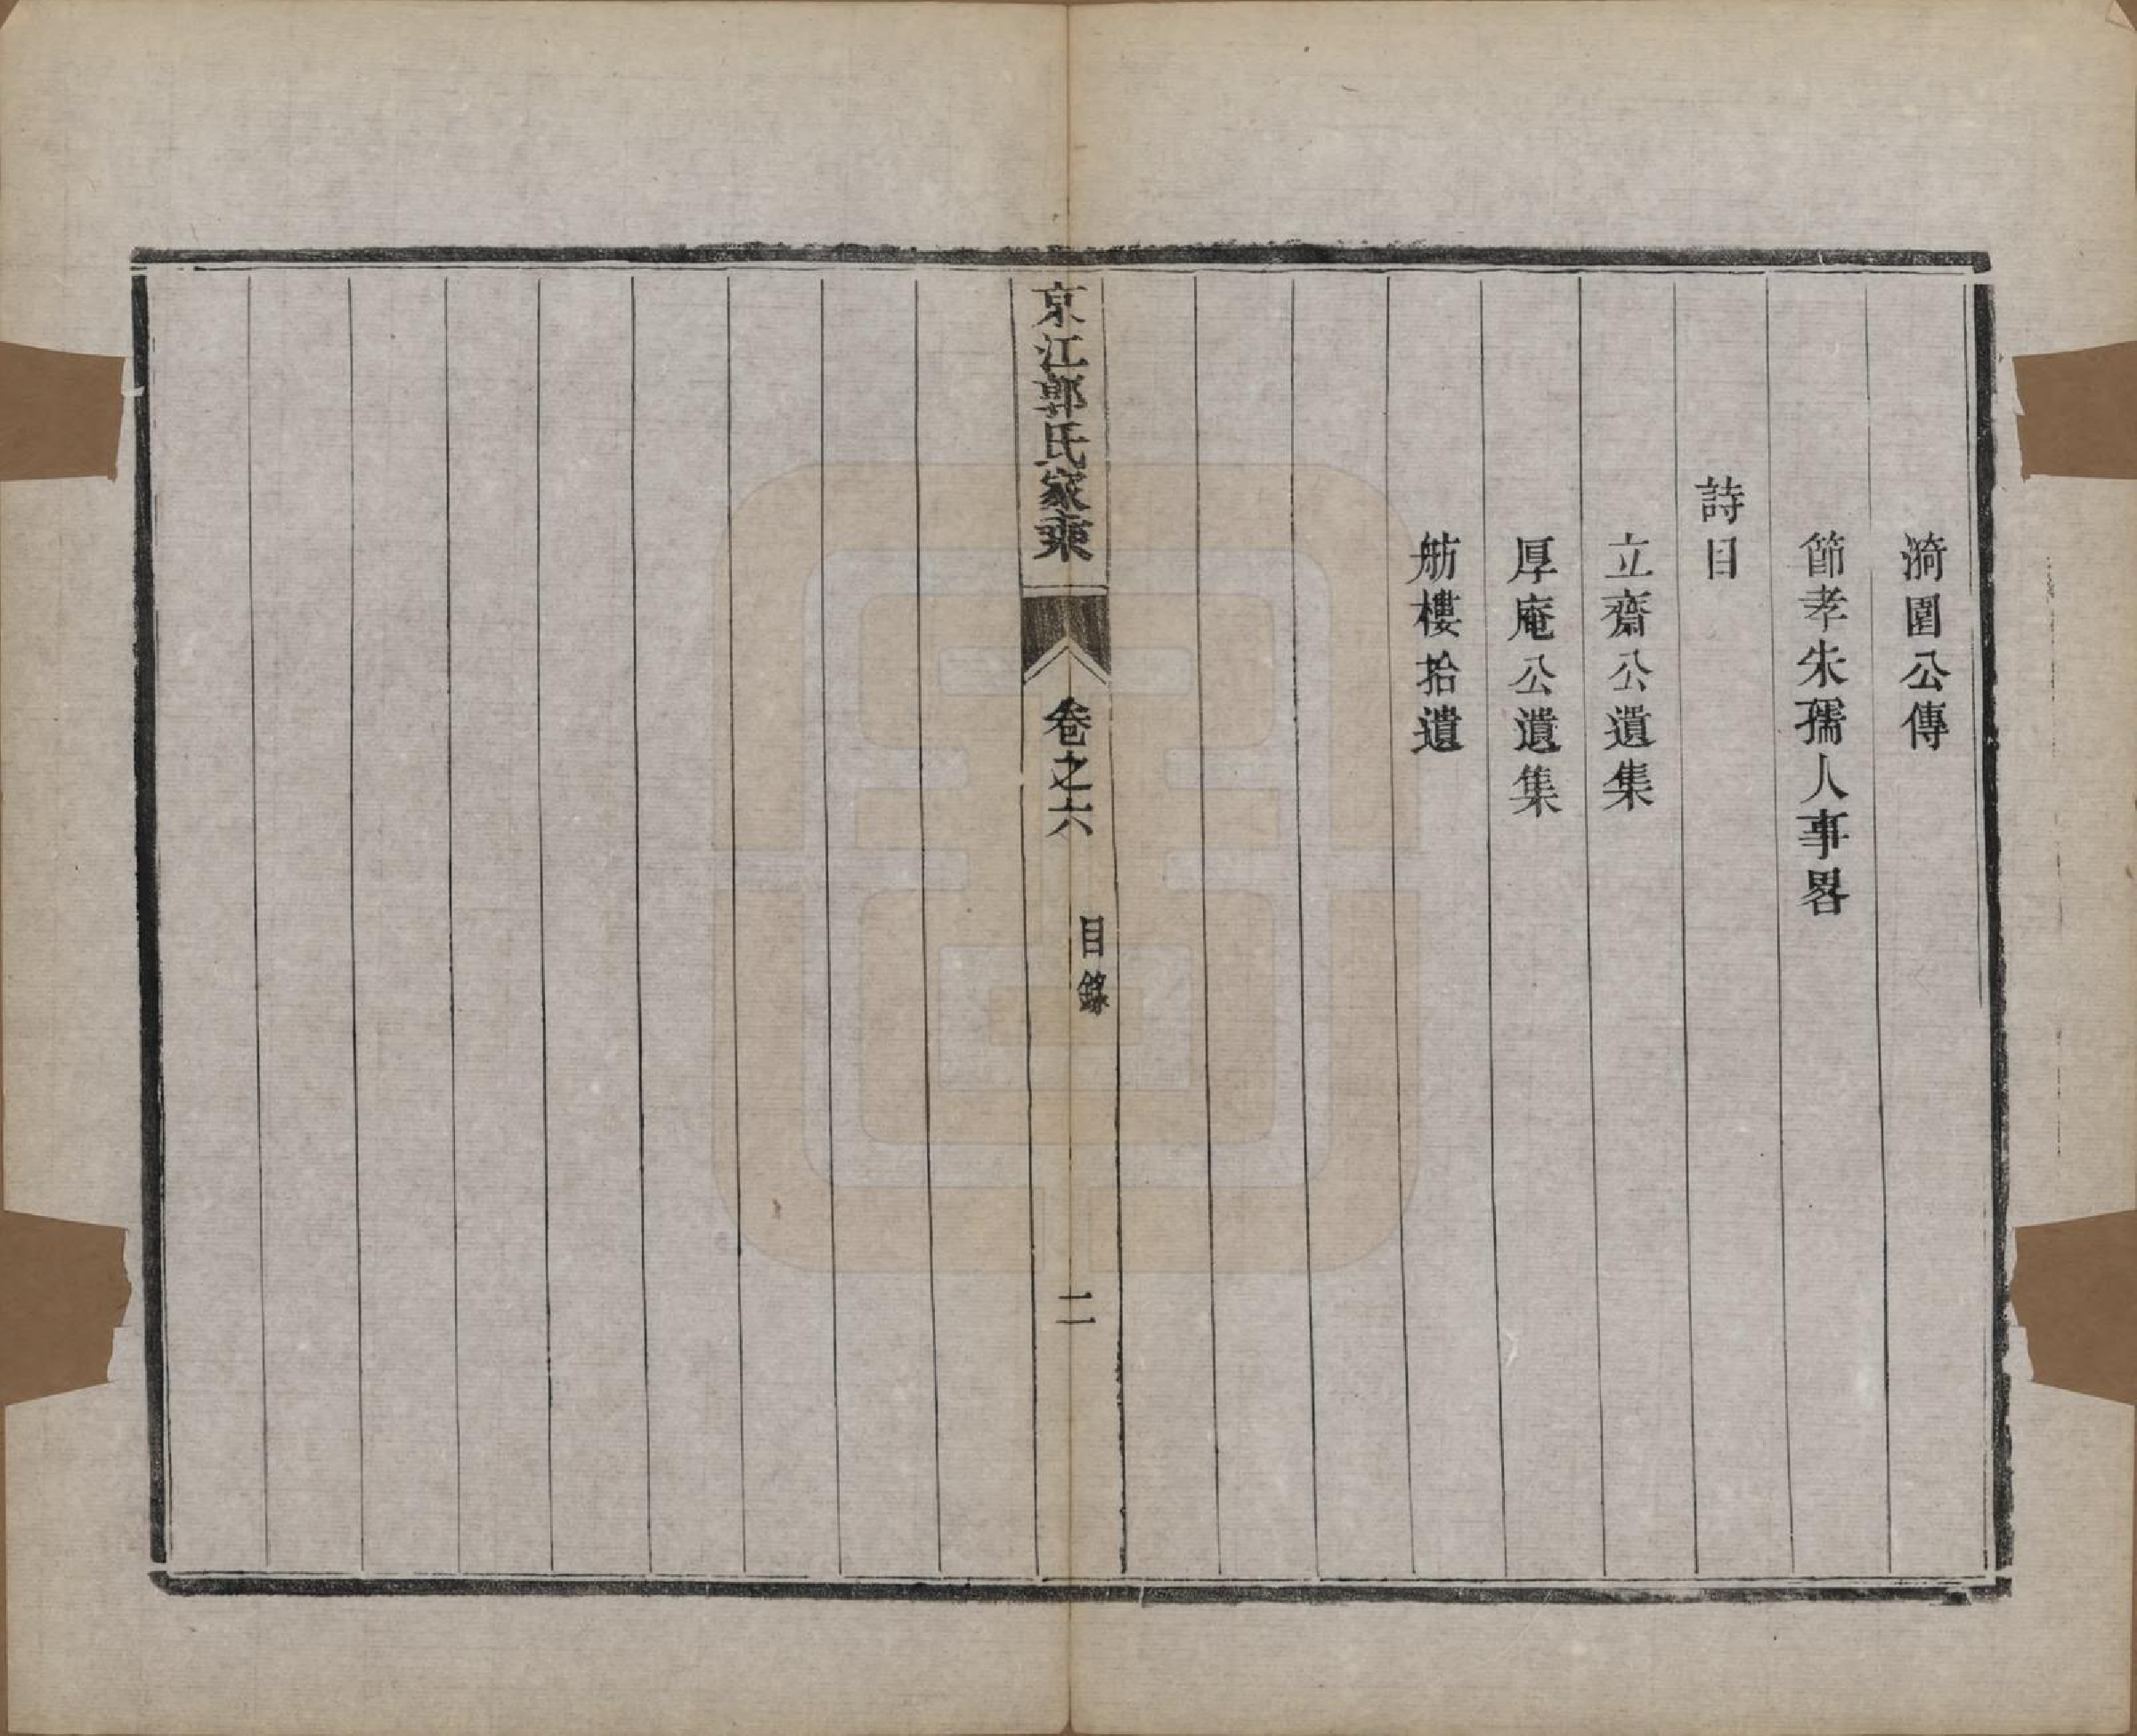 漪園公傳
節孝朱孺人事畧
詩目
立齋公遺集
厚庵公遺集
舫樓拾遺
京江郭氏家乘
卷之六
目錄
二